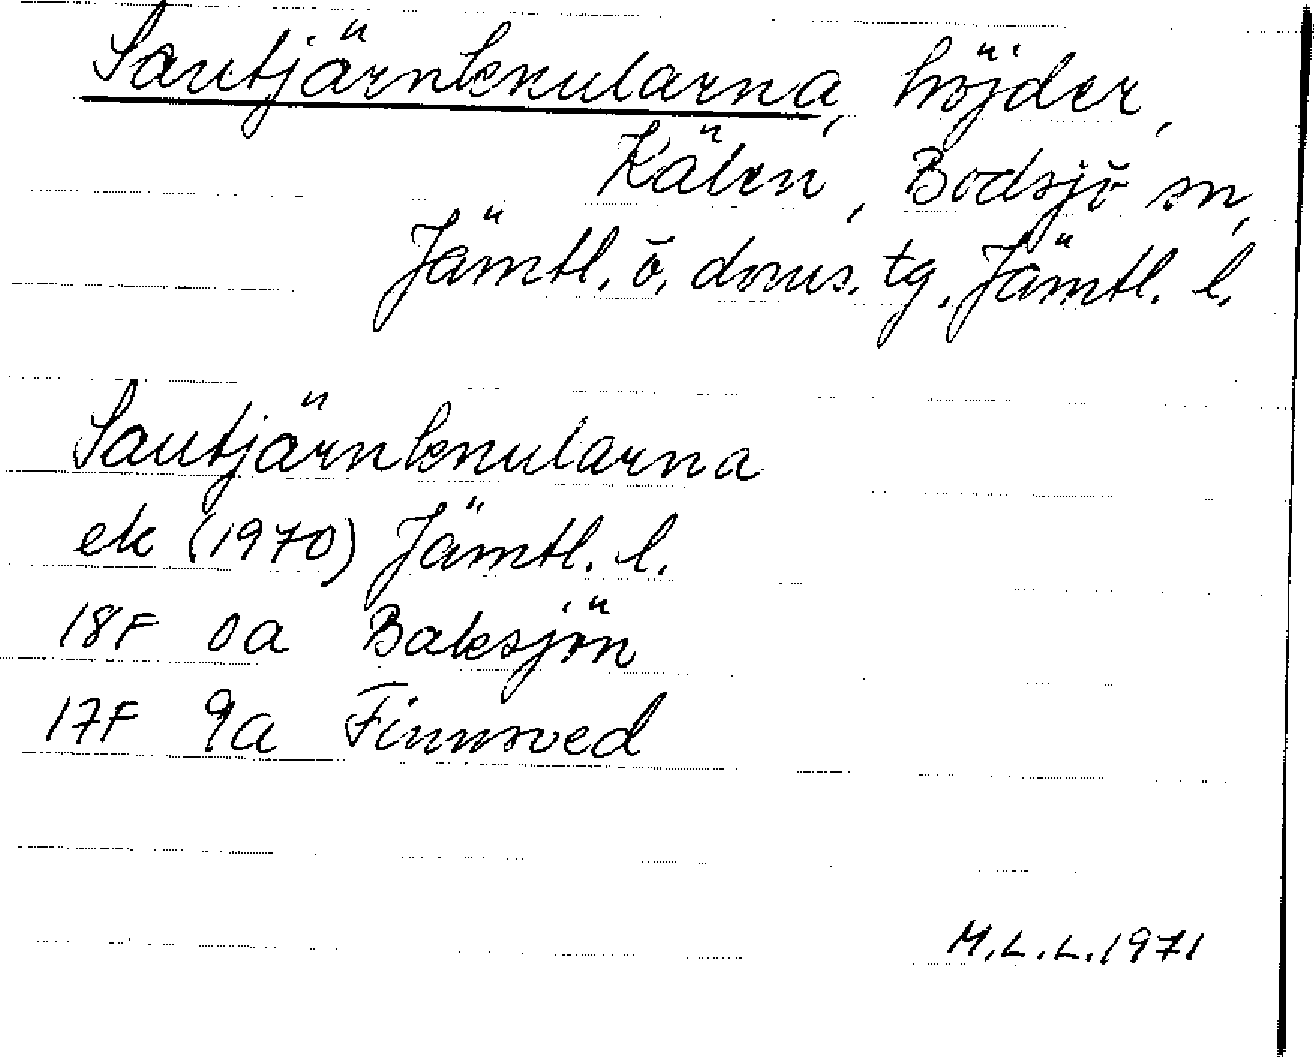 Sautjärnknularna, höjder,
Kälen, Bodsjö sn,
Jämtl. ö. doms. tg. Jämtl. l.
Sautjärnknularna
ek (1970) Jämtl. l.
18F 0a Baksjön
17F 9a Finnsved
M.L.L. 1971